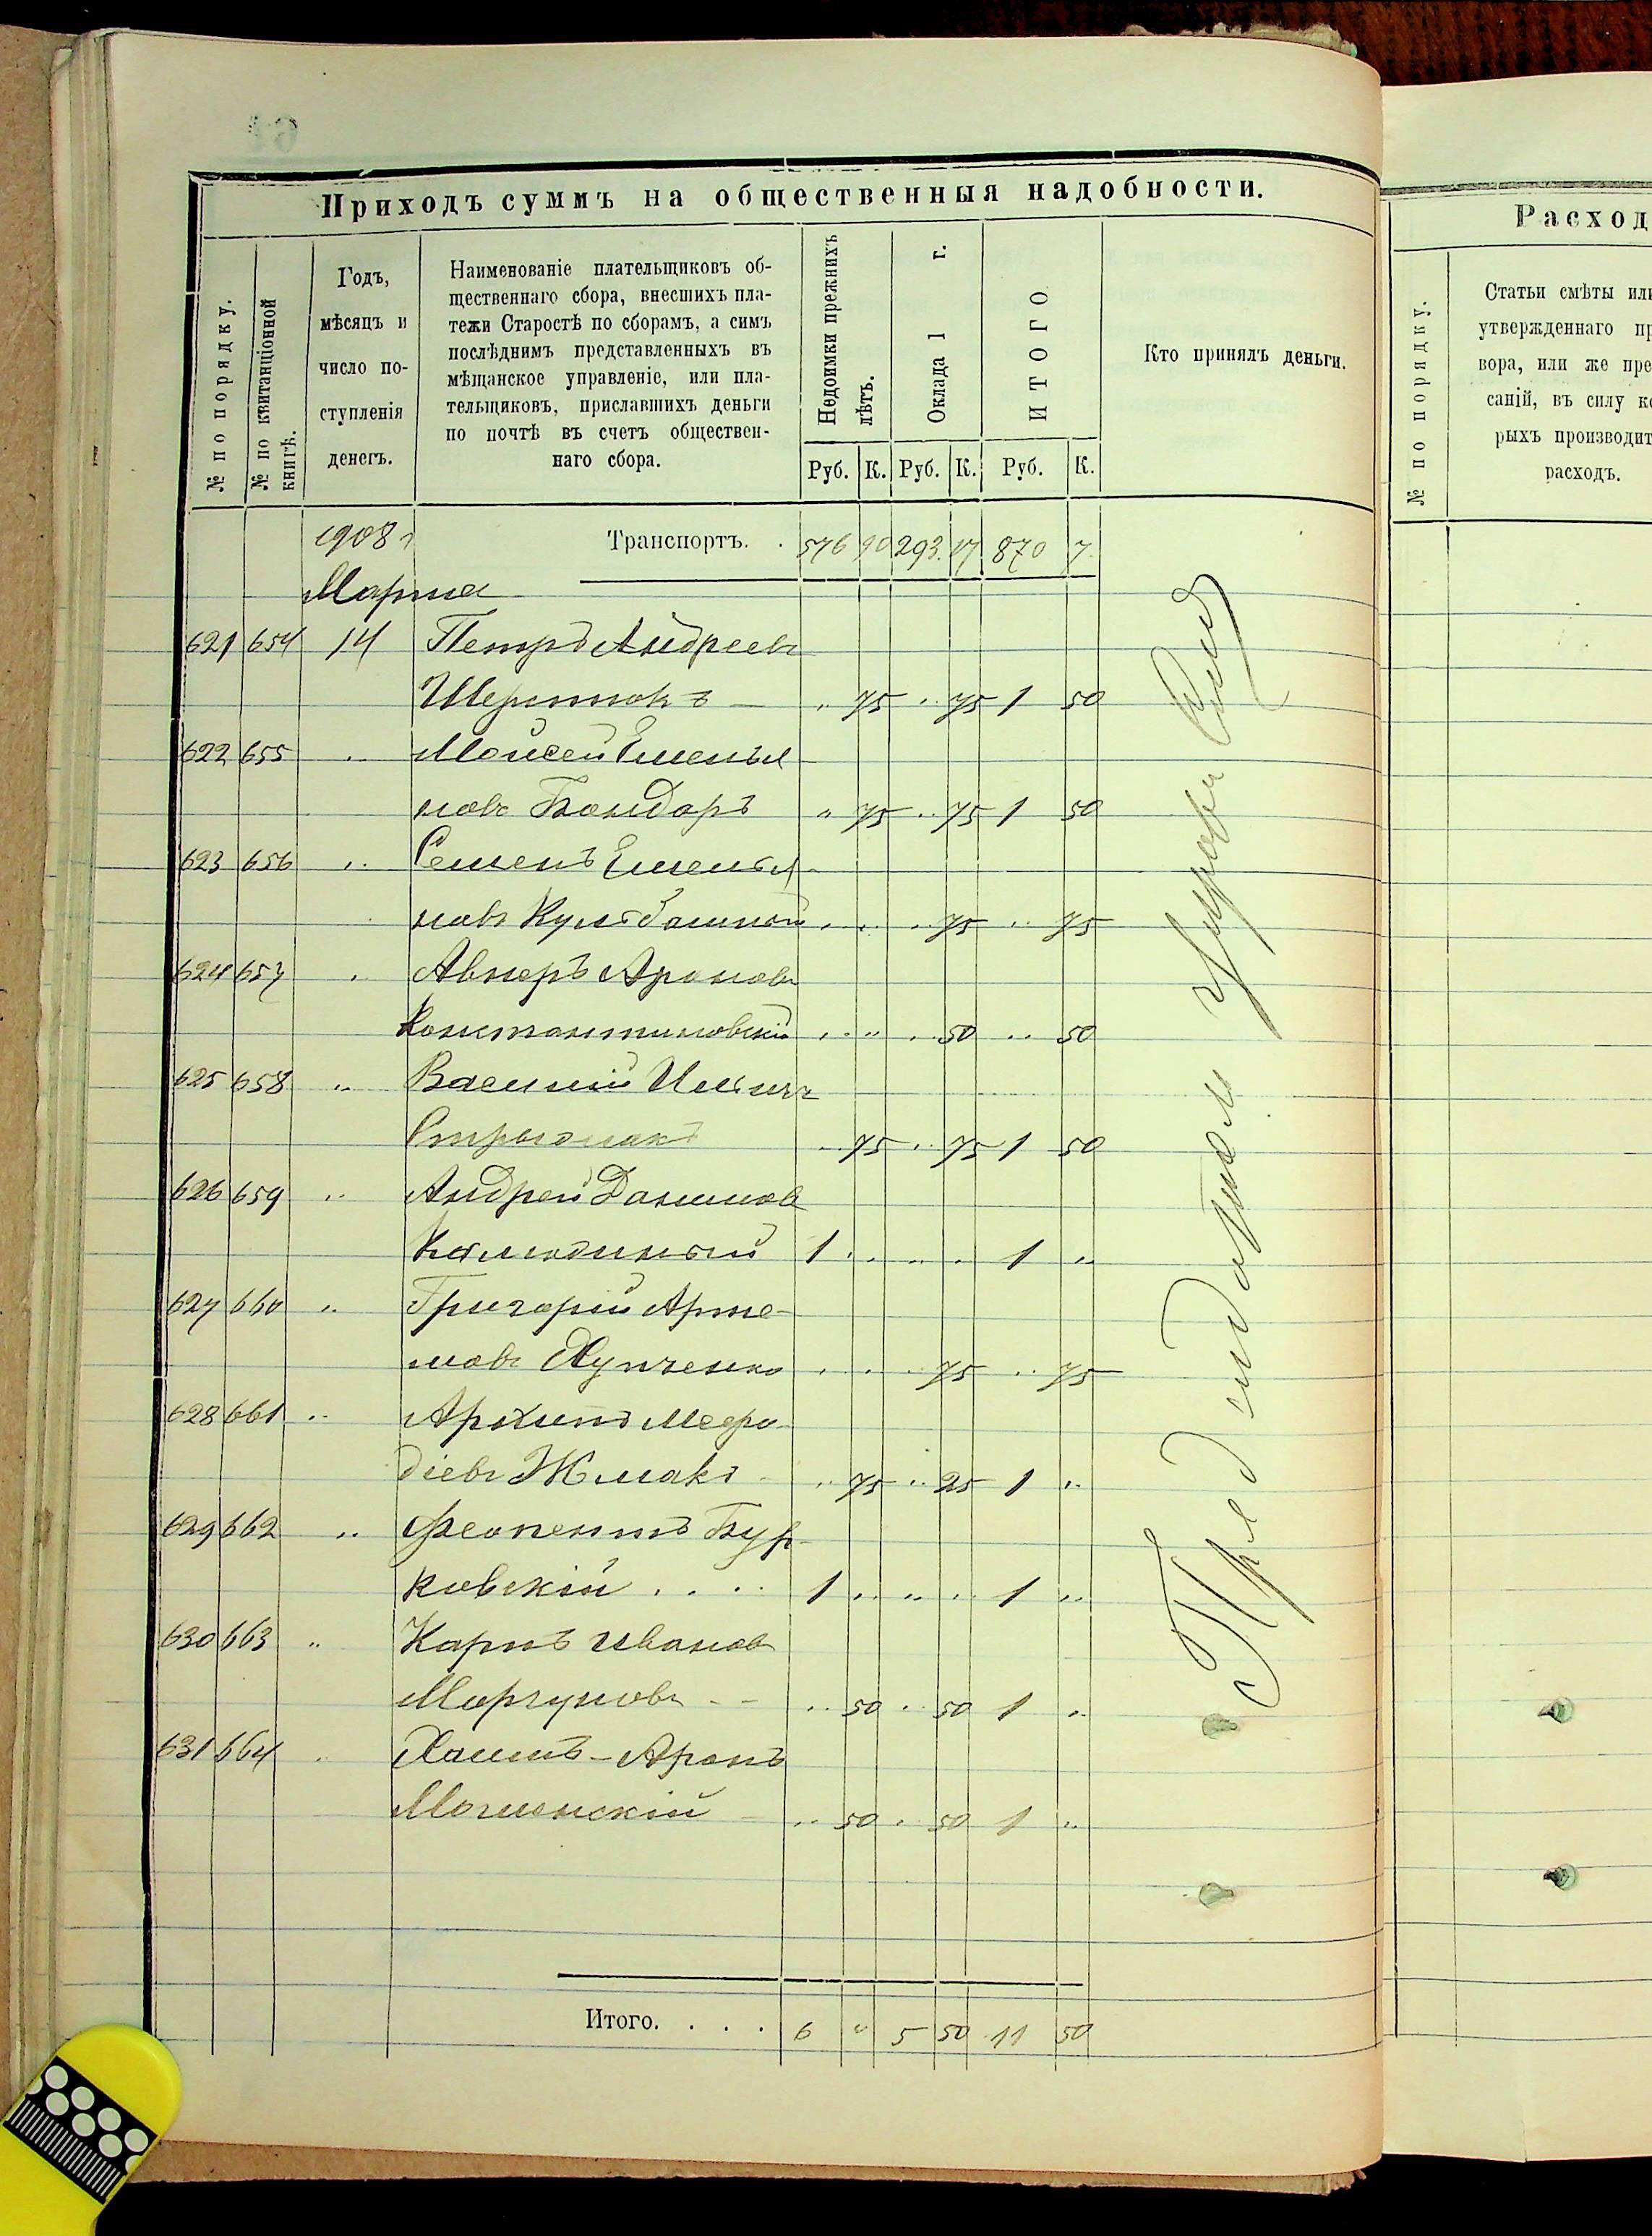 Приходъ суммъ на общественныя надобности.
№ по порядку.
№ по квитанціонной
книгѣ.
Годъ,
мѣсяцъ и
число по-
ступленія
денегъ.
Наименованіе плательщиковъ об-
щественнаго сбора, внесшихъ пла-
тежи Старостѣ по сборамъ, а симъ
послѣднимъ представленныхъ въ
мѣщанское управленіе, или пла-
тельщиковъ, приславшихъ деньги
по почтѣ въ счетъ обществен-
наго сбора.
Недоимки прежнихъ
лѣтъ.
Оклада 1 г.
ИТОГО
Кто принялъ деньги.
Руб. К. Руб. К. Руб. К.
1908 г Транспортъ. . 576 90 293 17 870 7
Марта
621 654 14 Петръ Андреевъ
Шерстюкъ — " 75 " 75 1 50
622 655 " Мойсей Емелья
новъ Бондарь " 75 " 75 1 50
623 656 " Семенъ Емелья
новъ " " " 75 " 75
624 657 " Авнеръ Ароновъ
Константиновскій " " " 50 " 50
625 658 " Василій Ильичъ
" 75 " 75 1 50
626 659 " Андрей Даниловъ
1 " " " 1 "
627 660 " Григорій Арте-
мовъ Хупченко " " " 75 " 75
628 661 " Архипъ Мефо-
діевъ Жмакъ " 75 " 25 1 "
629 662 " Феопентъ Бур-
ковскій . . . . 1 " " " 1 "
630 663 " Карпъ Ивановъ
Моргуновъ - - " 50 " 50 1 "
631 664 " Хаимъ-Аронъ
Могилянскій " 50 " 50 1 "
Итого. . . . 6 " 5 50 11 50
Расход
№ по порядку.
Статьи смѣты или
утвержденнаго пр
вора, или же пре
саній, въ силу ко
рыхъ производит
расходъ.